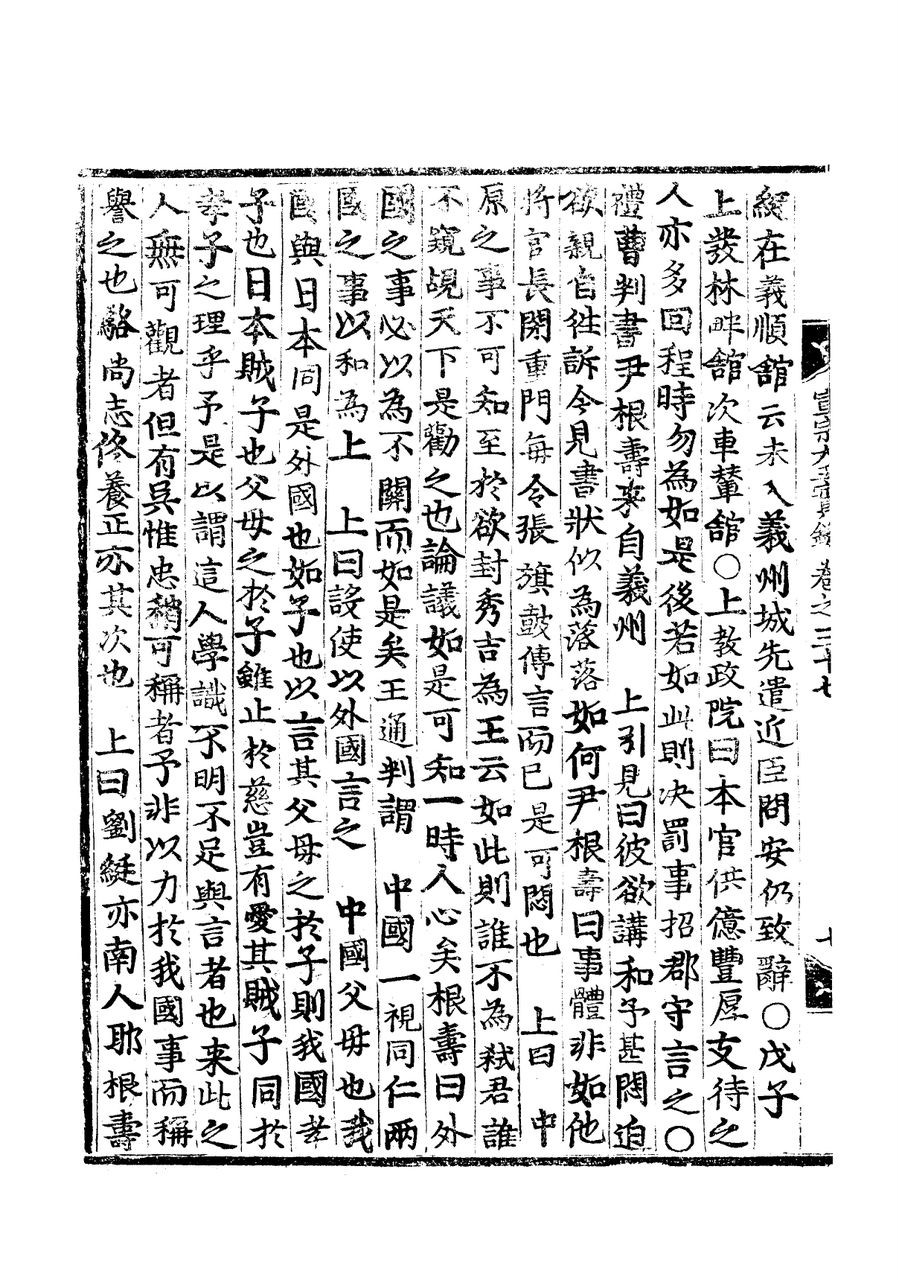 宣宗大王實錄 卷之三十七
綎在義順舘云未入義州城先遣近臣問安仍致辭○戊子
上發林畔舘次車輦舘○上教政院曰本官供億豐厚支待之
人亦多回程時勿為如是後若如此則決罰事招郡守言之○
禮曹判書尹根壽来自義州 上引見曰彼欲講和予甚悶迫
欲親自徃訴今見書狀似為落落如何尹根壽曰事體非如他
將官長閉重門每令張 旗鼓傳言而已是可悶也 上曰 中
原之事不可知至於欲封秀吉為王云如此則誰不為弑君誰
不窺覘天下是勸之也論議如是可知一時人心矣根壽曰外
國之事必以為不關而如是矣王通判謂 中國一視同仁兩
國之事以和為上 上曰設使以外國言之 中國父母也我
國與日本同是外國也如子也以言其父母之於子則我國孝
子也日本賊子也父母之於子雖止於慈豈有愛其賊子同於
孝子之理乎予是以謂這人學識不明不足與言者也来此之
人無可觀者但有吳惟忠稍可稱者予非以力於我國事而稱
譽之也駱尚志佟養正亦其次也 上曰劉綎亦南人耶根壽